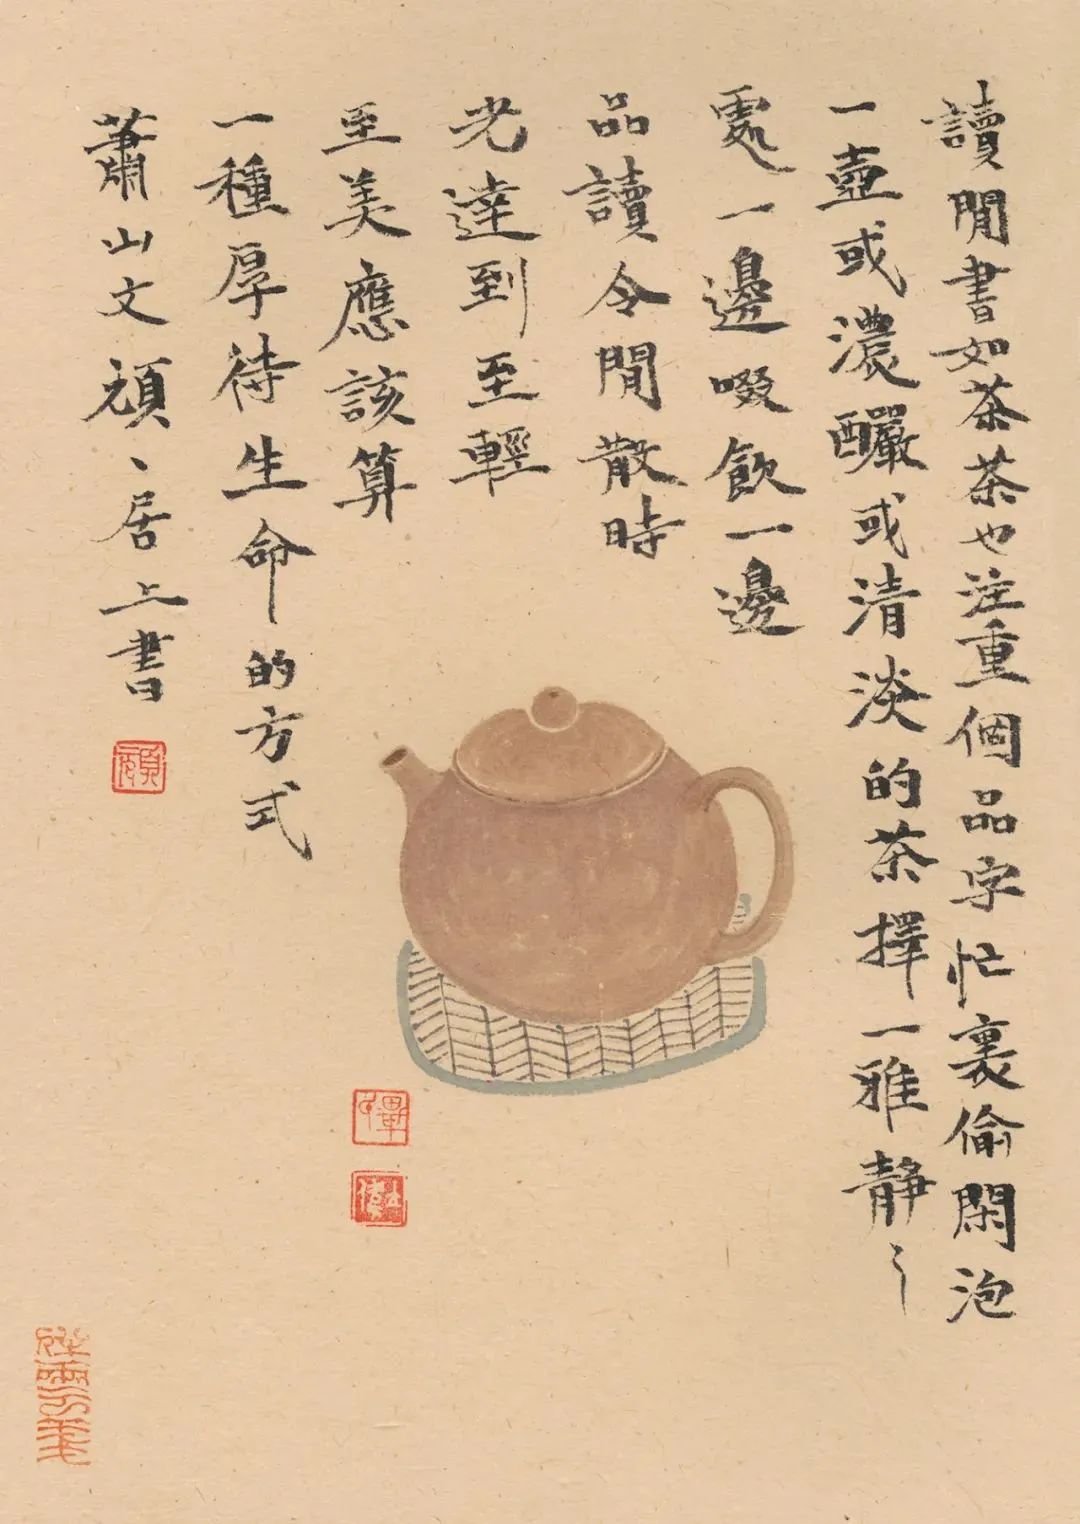 讀閒書如茶茶也注重個品字忙裏偷閑泡
一壺或濃釅或清淡的茶擇一雅靜之
處一邊啜飲一邊
品讀令閒散時
光達到至輕
至美應該算
一種厚待生命的方式
蕭山文頑、居上書